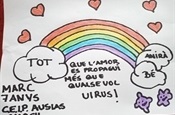 TOT
ANIRÀ
BÉ
QUE L'AMOR
ES PROPAGUI
MÉS QUE
QUALSEVOL
VIRUS!
MARC
7 ANYS
CEIP AUSIAS
MARCH